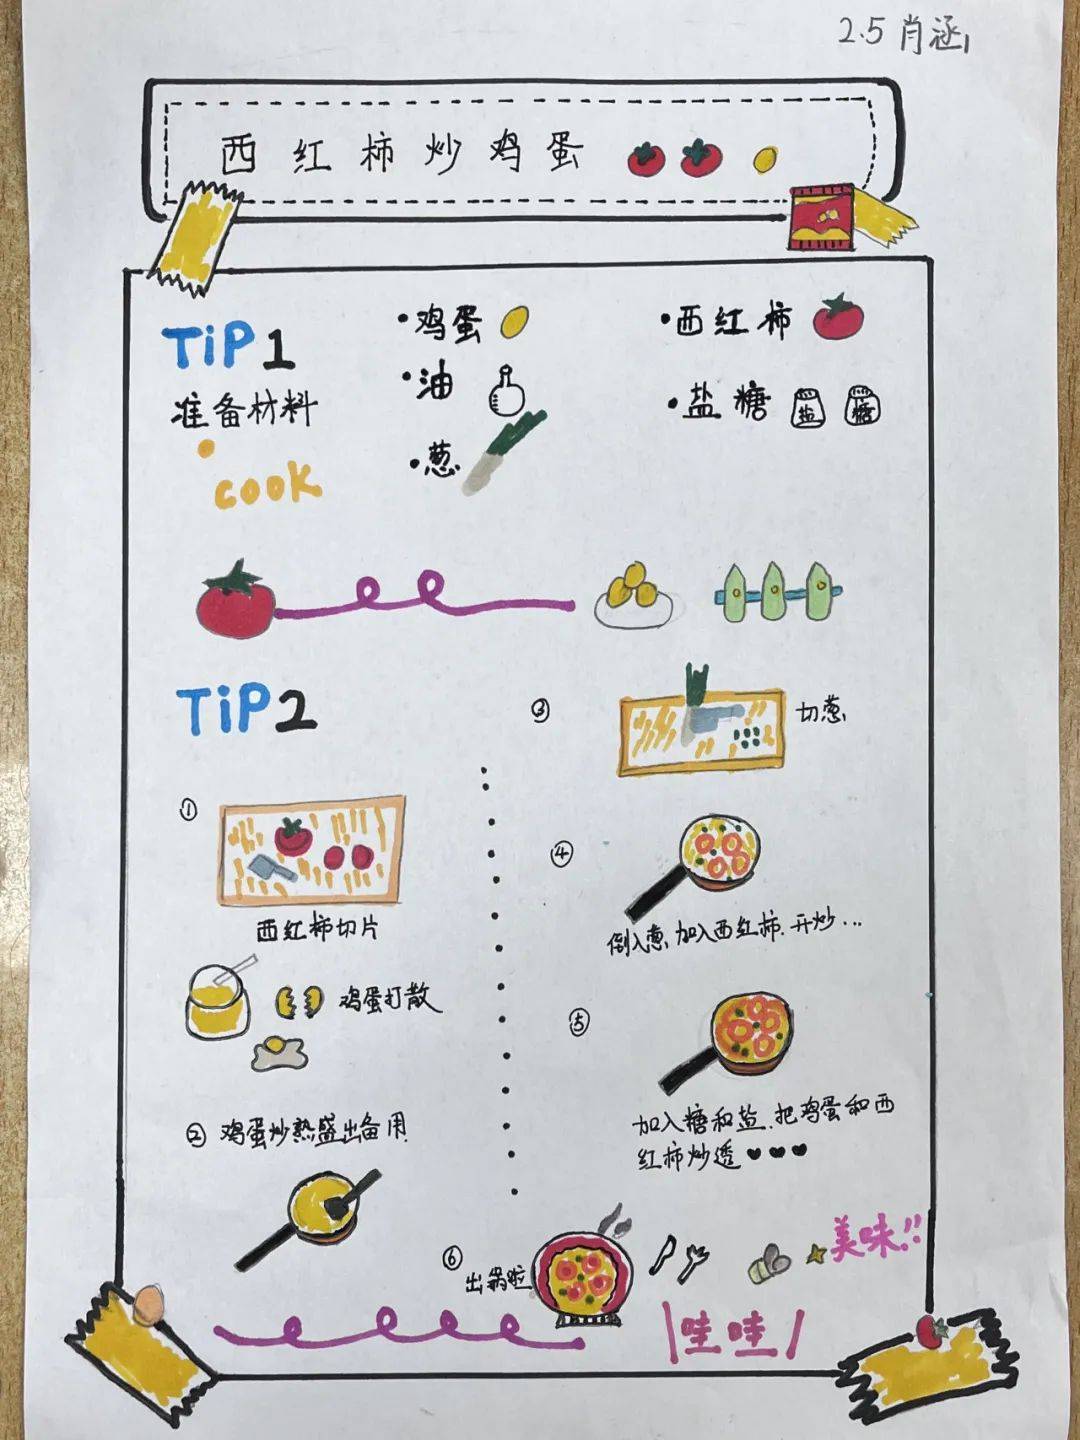 2.5 肖涵
西红柿炒鸡蛋
TiP1
准备材料
cook
•鸡蛋
•西红柿
•油
•盐糖
盐
糖
•葱
TiP2
①
西红柿切片
鸡蛋打散
② 鸡蛋炒熟盛出备用
③
切葱
④
倒入葱,加入西红柿.开炒...
⑤
加入糖和盐.把鸡蛋和西
红柿炒透
⑥
出锅啦
美味!!
哇哇